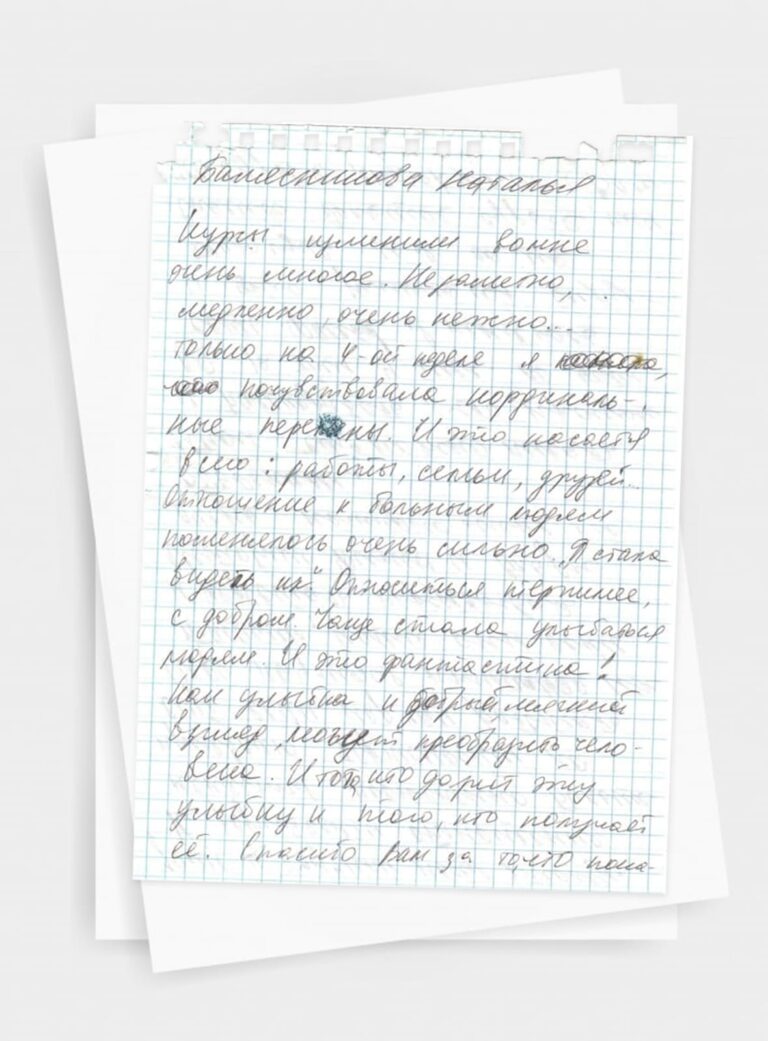 Балясникова Наталья
Курсы изменили во мне
очень многое. Незаметно,
медленно, очень нежно...
только на 4-ой неделе я
почувствовала кординаль-
ные перемены. И это касается
всего: работы, семьи, друзей...
Отношение к больным людям
поменялось очень сильно. „Я стала
видеть их". Относиться терпимее,
с добром. Чаще стала улыбаться
людям. И это фантастика!
Как улыбка и добрый, мягкий
взгляд, может преобразить чело-
века. И того, кто дарит эту
улыбку и того, кто получает
её. Спасибо Вам за то, что пока-